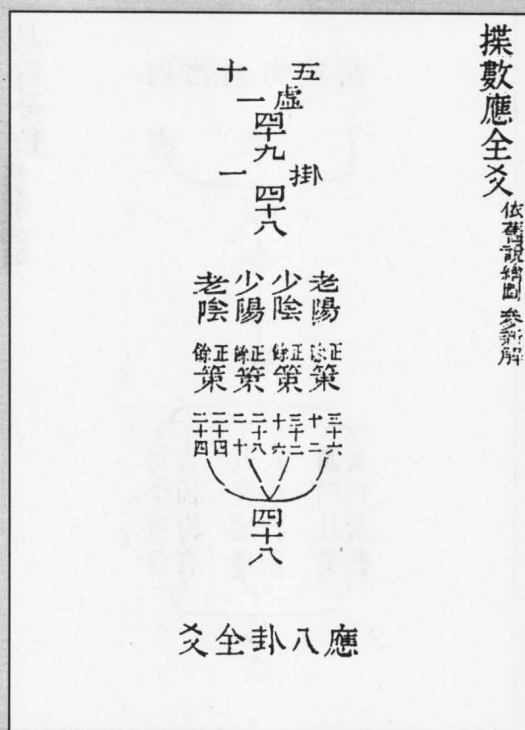 揲數應全爻
依舊說繪圖 參新解
五十
虛一
四十九
掛一
四十八
老陽 少陰 少陽 老陰
正餘策 正餘策 正餘策 正餘策
三十六 十二 三十二 十六 二十八 二十 二十四 二十四
四十八
應八卦全爻